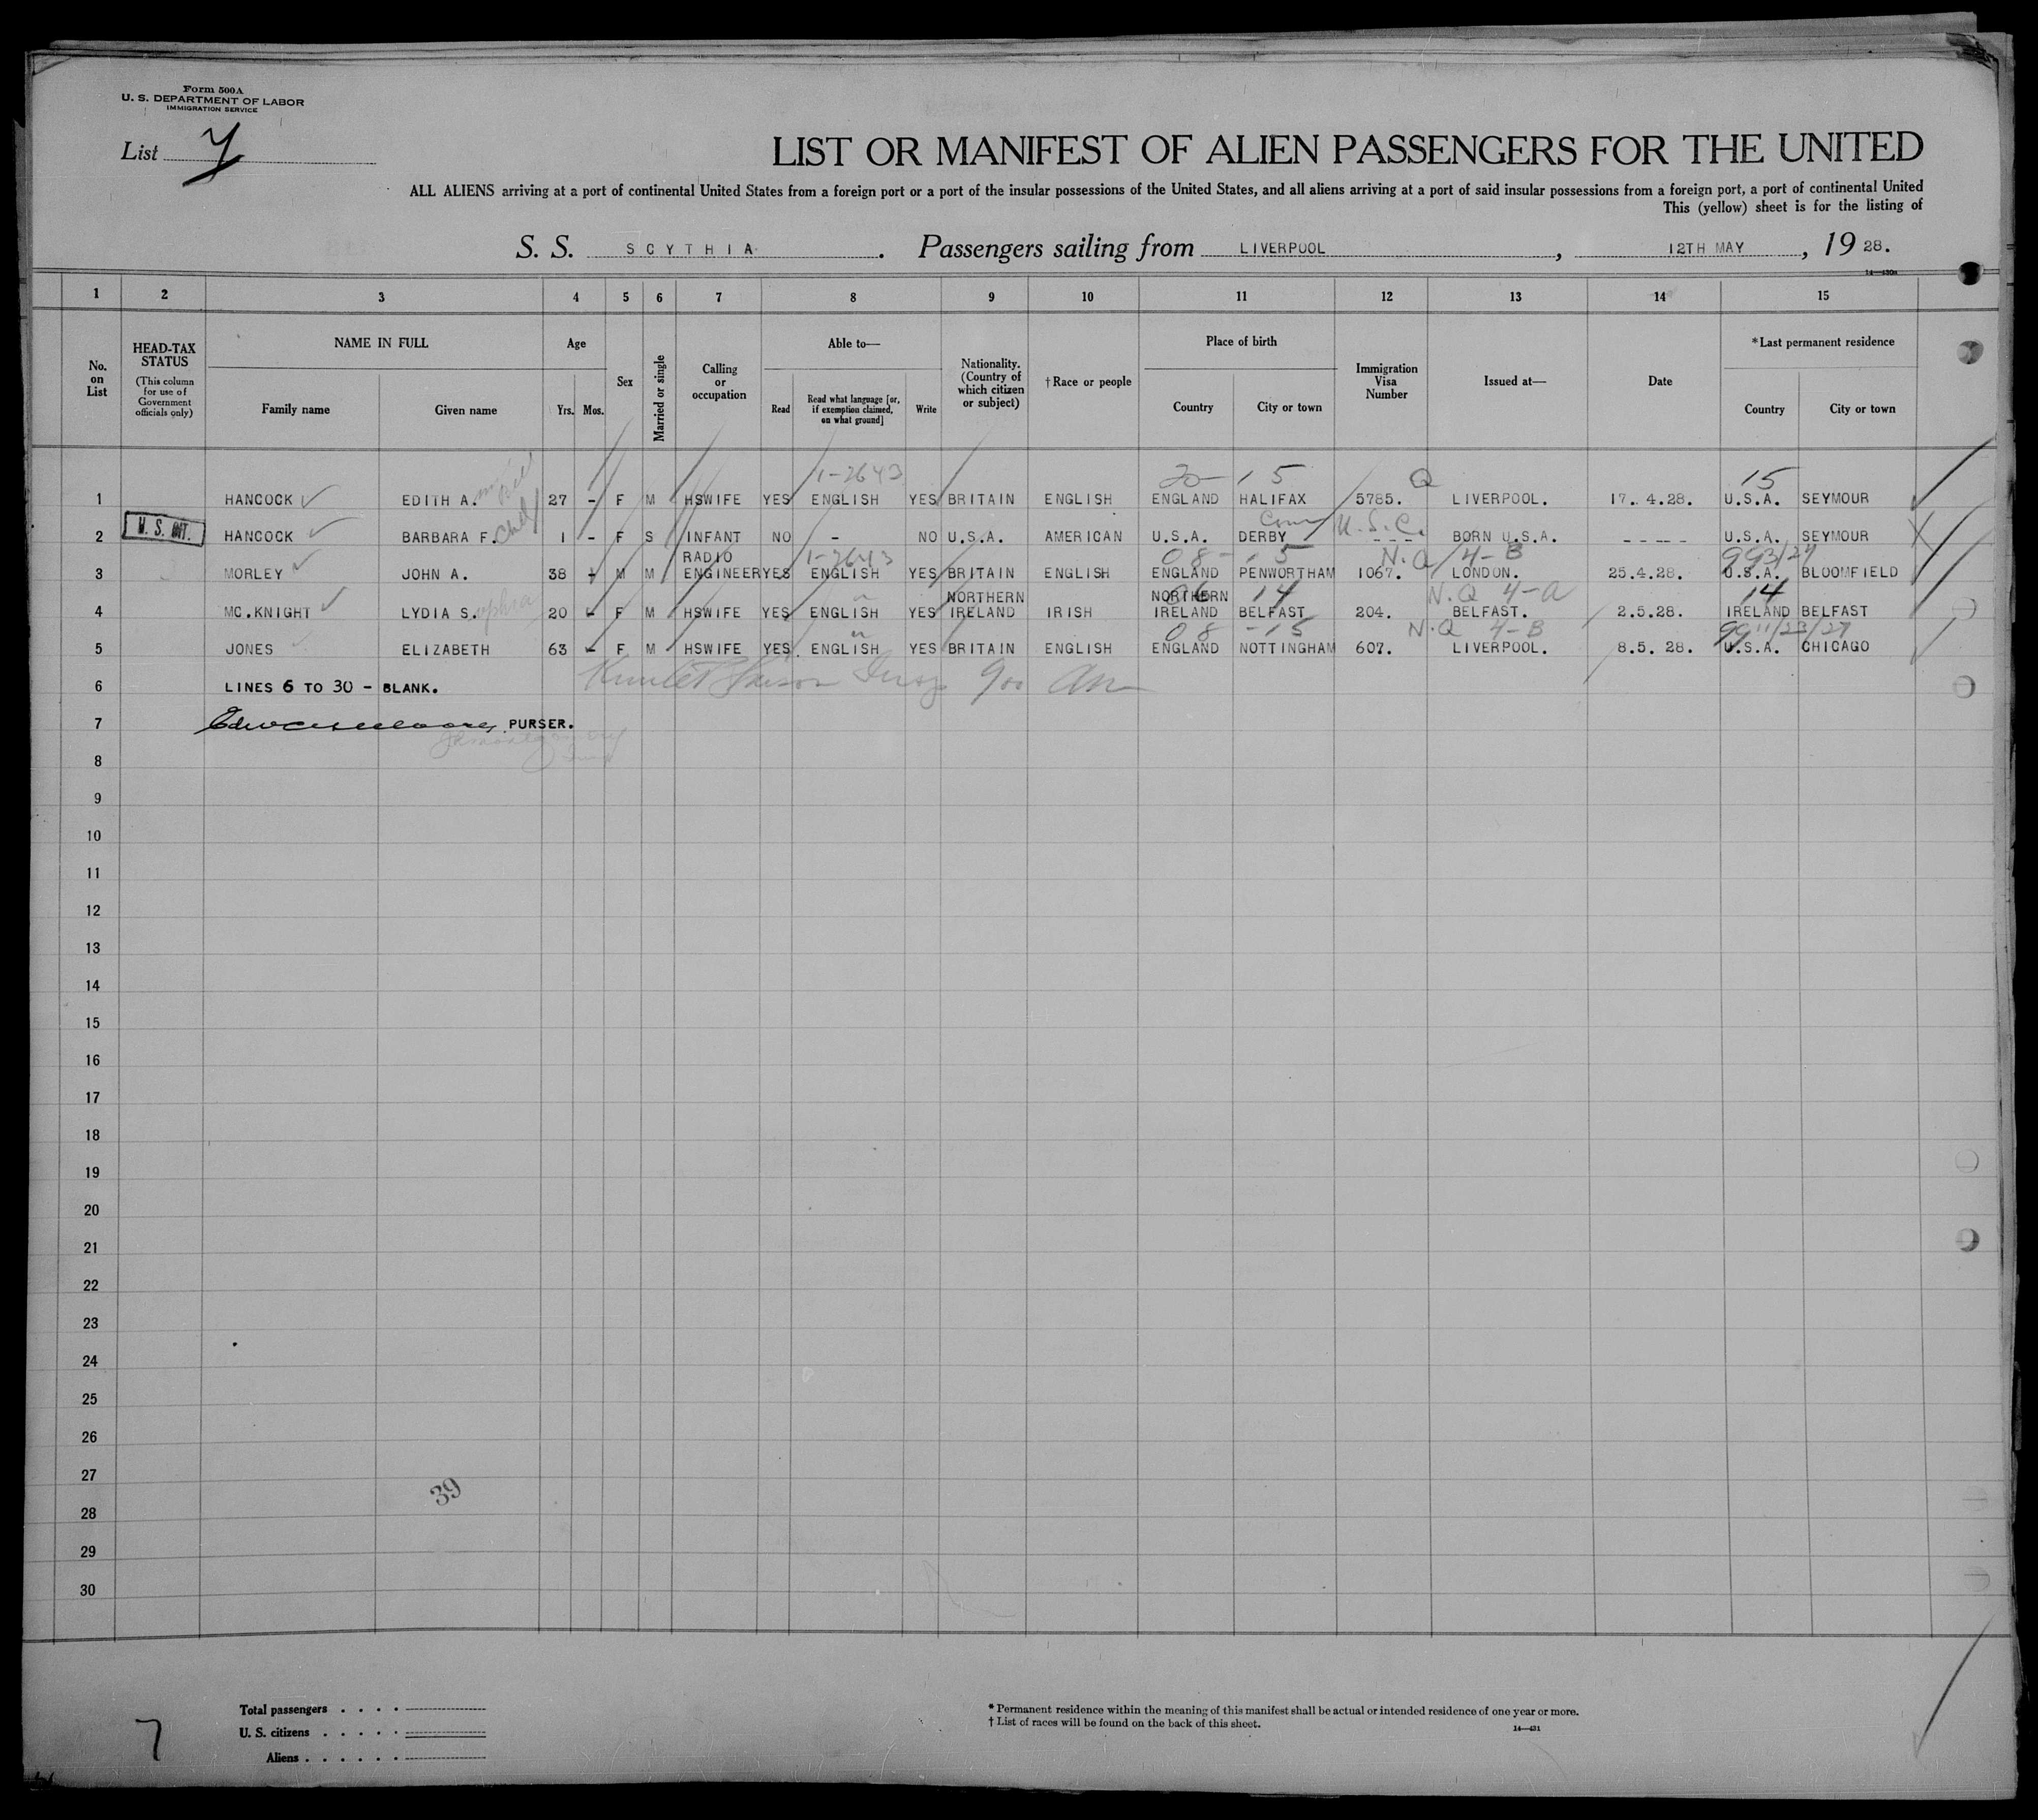 Form 500A
U. S. DEPARTMENT OF LABOR
IMMIGRATION SERVICE
List 7
LIST OR MANIFEST OF ALIEN PASSENGERS FOR THE UNITED
ALL ALIENS arriving at a port of continental United States from a foreign port or a port of the insular possessions of the United States, and all aliens arriving at a port of said insular possessions from a foreign port, a port of continental United
This (yellow) sheet is for the listing of
S. S. SCYTHIA. Passengers sailing from LIVERPOOL, 12TH MAY, 19 28.
1 2 3 4 5 6 7 8 9 10 11 12 13 14 15
No. on List
HEAD-TAX STATUS (This column for use of Government officials only)
NAME IN FULL
Family name Given name
Age
Yrs. Mos.
Sex
Married or single
Calling or occupation
Able to—
Read Read what language [or, if exemption claimed, on what ground] Write
Nationality. (Country of which citizen or subject)
†Race or people
Place of birth
Country City or town
Immigration Visa Number
Issued at—
Date
*Last permanent residence
Country City or town
1-2643 20- 15 Q 15
1 HANCOCK EDITH A. 27 - F M HSWIFE YES ENGLISH YES BRITAIN ENGLISH ENGLAND HALIFAX 5785. LIVERPOOL. 17.4.28. U.S.A. SEYMOUR
Conn U.S.C.
2 HANCOCK BARBARA F. 1 - F S INFANT NO - NO U.S.A. AMERICAN U.S.A. DERBY - - - BORN U.S.A. - - - - - U.S.A. SEYMOUR
RADIO 1-2643 08- 15 N.Q 4-B
3 MORLEY JOHN A. 38 - M M ENGINEER YES ENGLISH YES BRITAIN ENGLISH ENGLAND PENWORTHAM 1067. LONDON. 25.4.28. U.S.A. BLOOMFIELD
NORTHERN NORTHERN 14 N.Q 4-a 14
4 MC.KNIGHT LYDIA S. 20 - F M HSWIFE YES ENGLISH YES IRELAND IRISH IRELAND BELFAST 204. BELFAST. 2.5.28. IRELAND BELFAST
08 -15 N.Q 4-B
5 JONES ELIZABETH 63 - F M HSWIFE YES. ENGLISH YES BRITAIN ENGLISH ENGLAND NOTTINGHAM 607. LIVERPOOL. 8.5.28. U.S.A. CHICAGO
6 LINES 6 TO 30 - BLANK.
7 PURSER.
8
9
10
11
12
13
14
15
16
17
18
19
20
21
22
23
24
25
26
27
39
28
29
30
Total passengers
U. S. citizens
Aliens
7
* Permanent residence within the meaning of this manifest shall be actual or intended residence of one year or more.
† List of races will be found on the back of this sheet.
14—431